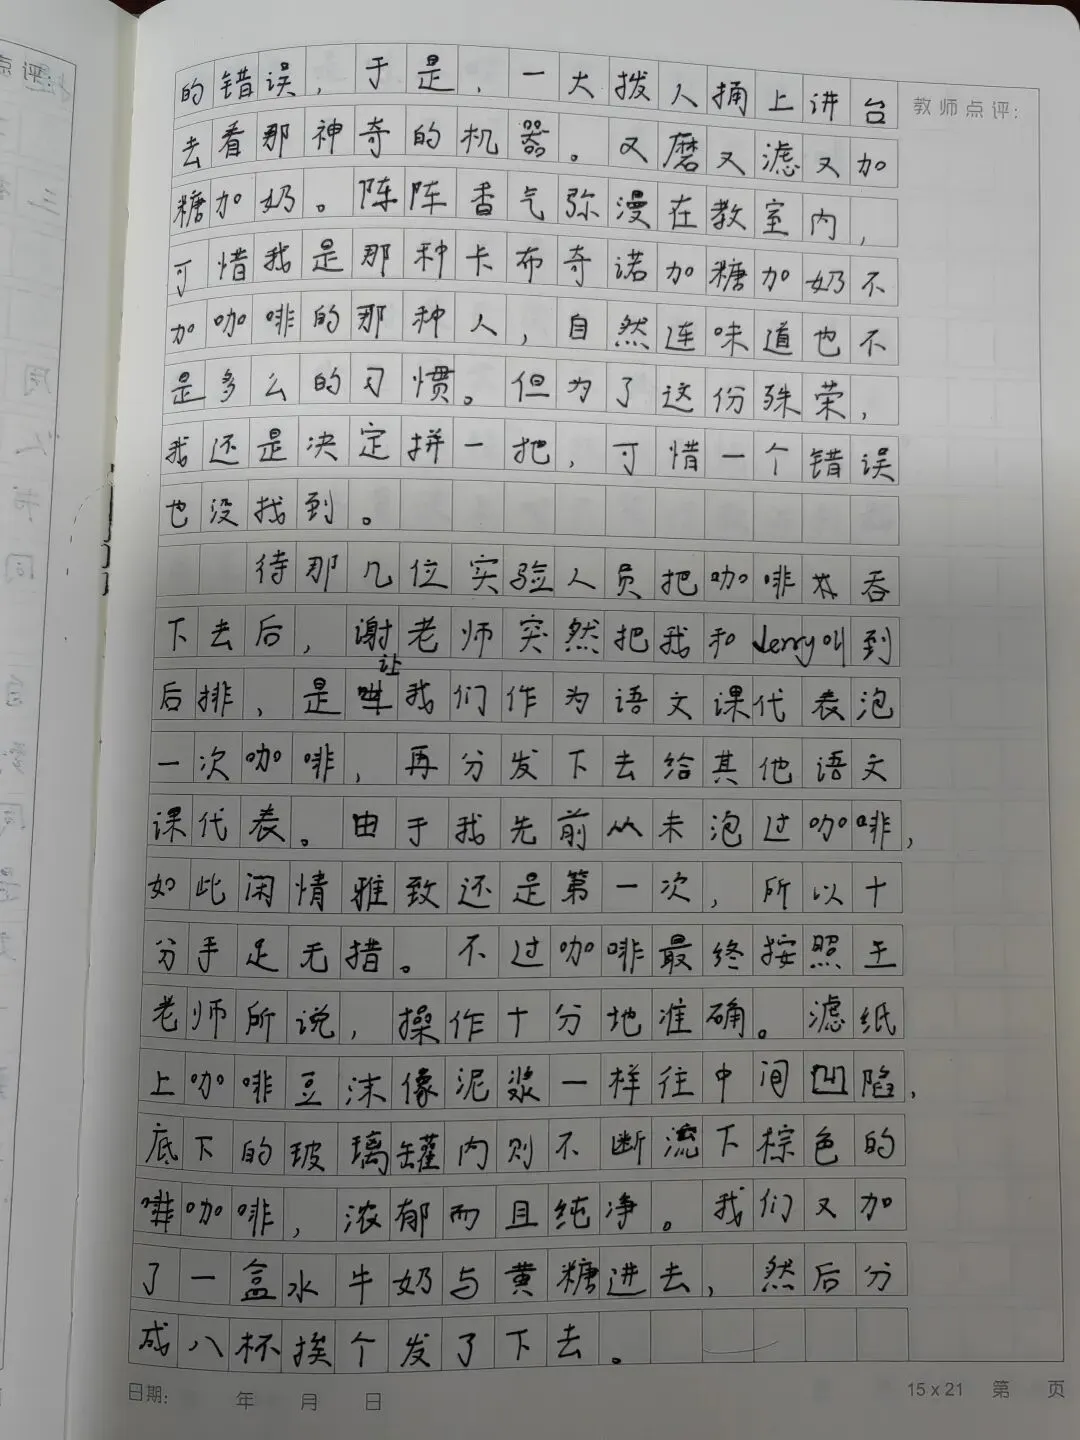 教师点评:
的错误，于是，一大拨人捅上讲台
去看那神奇的机器。又磨又滤又加
糖加奶。阵阵香气弥漫在教室内，
可惜我是那种卡布奇诺加糖加奶不
加咖啡的那种人，自然连味道也不
是多么的习惯。但为了这份殊荣，
我还是决定拼一把，可惜一个错误
也没找到。
待那几位实验人员把咖啡吞
下去后，谢老师突然把我和Jerry叫到
后排，是让我们作为语文课代表泡
一次咖啡，再分发下去给其他语文
课代表。由于我先前从未泡过咖啡，
如此闲情雅致还是第一次，所以十
分手足无措。不过咖啡最终按照王
老师所说，操作十分地准确。滤纸
上咖啡豆沫像泥浆一样往中间凹陷，
底下的玻璃罐内则不断流下棕色的
咖啡，浓郁而且纯净。我们又加
了一盒水牛奶与黄糖进去，然后分
成八杯挨个发了下去。
日期: 年 月 日
15 x 21 第 页